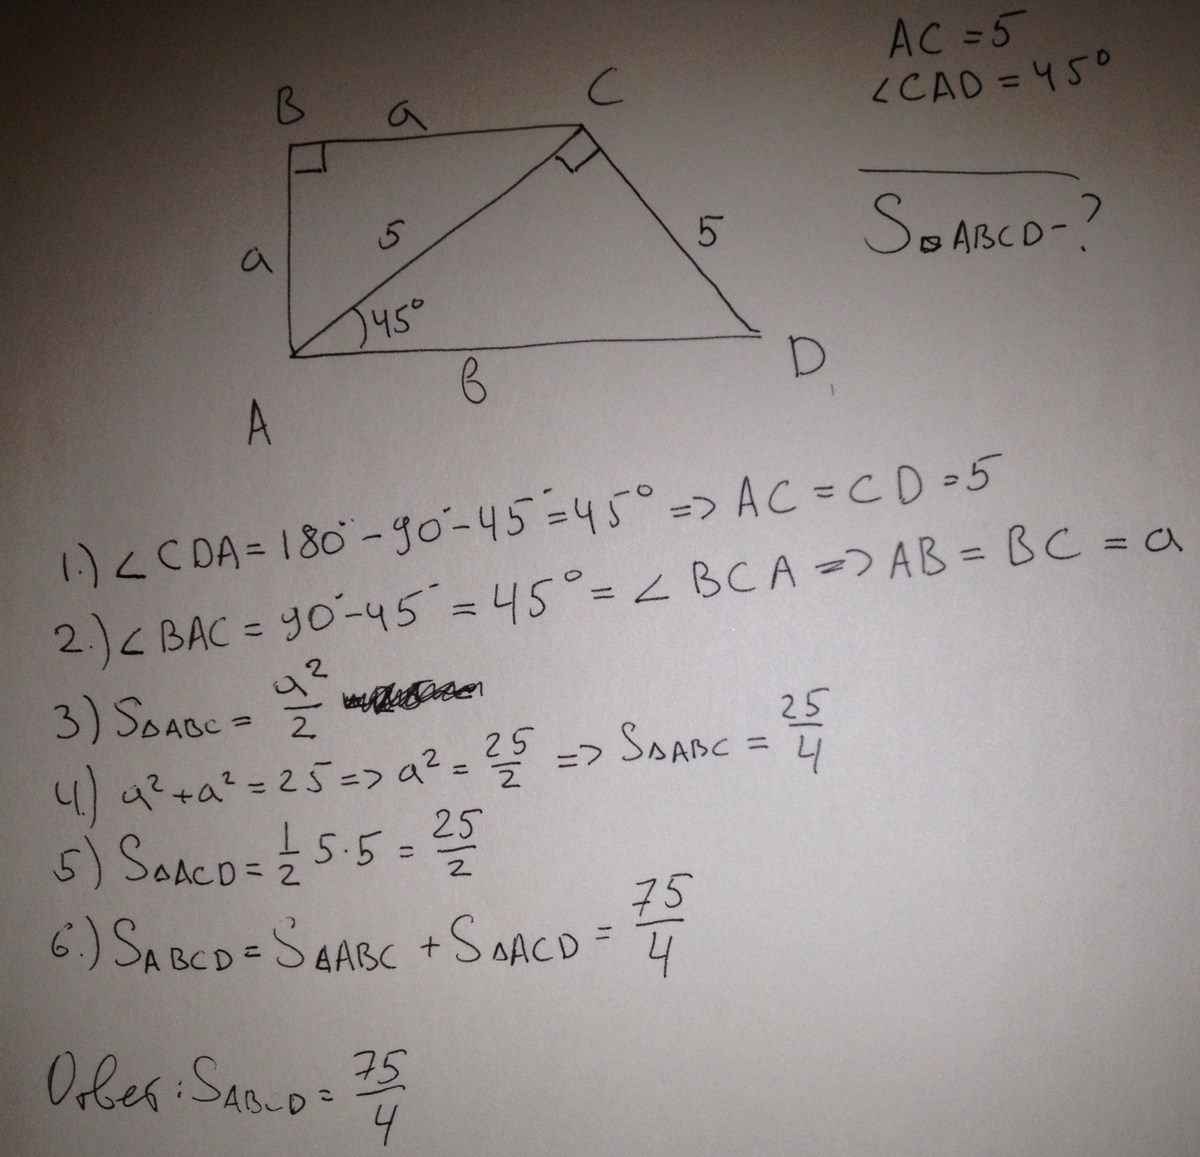 AC = 5
∠CAD = 45°
S▫ABCD - ?
B a C
5
5
a
45°
в
D
A
1.) ∠CDA = 180° - 90° - 45° = 45° => AC = CD = 5
2.) ∠BAC = 90° - 45° = 45° = ∠BCA => AB = BC = a
3) S△ABC = a²/2
4.) a² + a² = 25 => a² = 25/2 => S△ABC = 25/4
5) S△ACD = 1/2 5·5 = 25/2
6.) SABCD = S△ABC + S△ACD = 75/4
Ответ: SABCD = 75/4